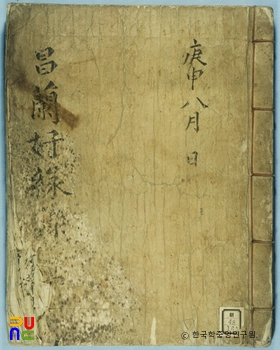 庚申 八月 日
昌蘭好緣
ⓒ 한국학중앙연구원